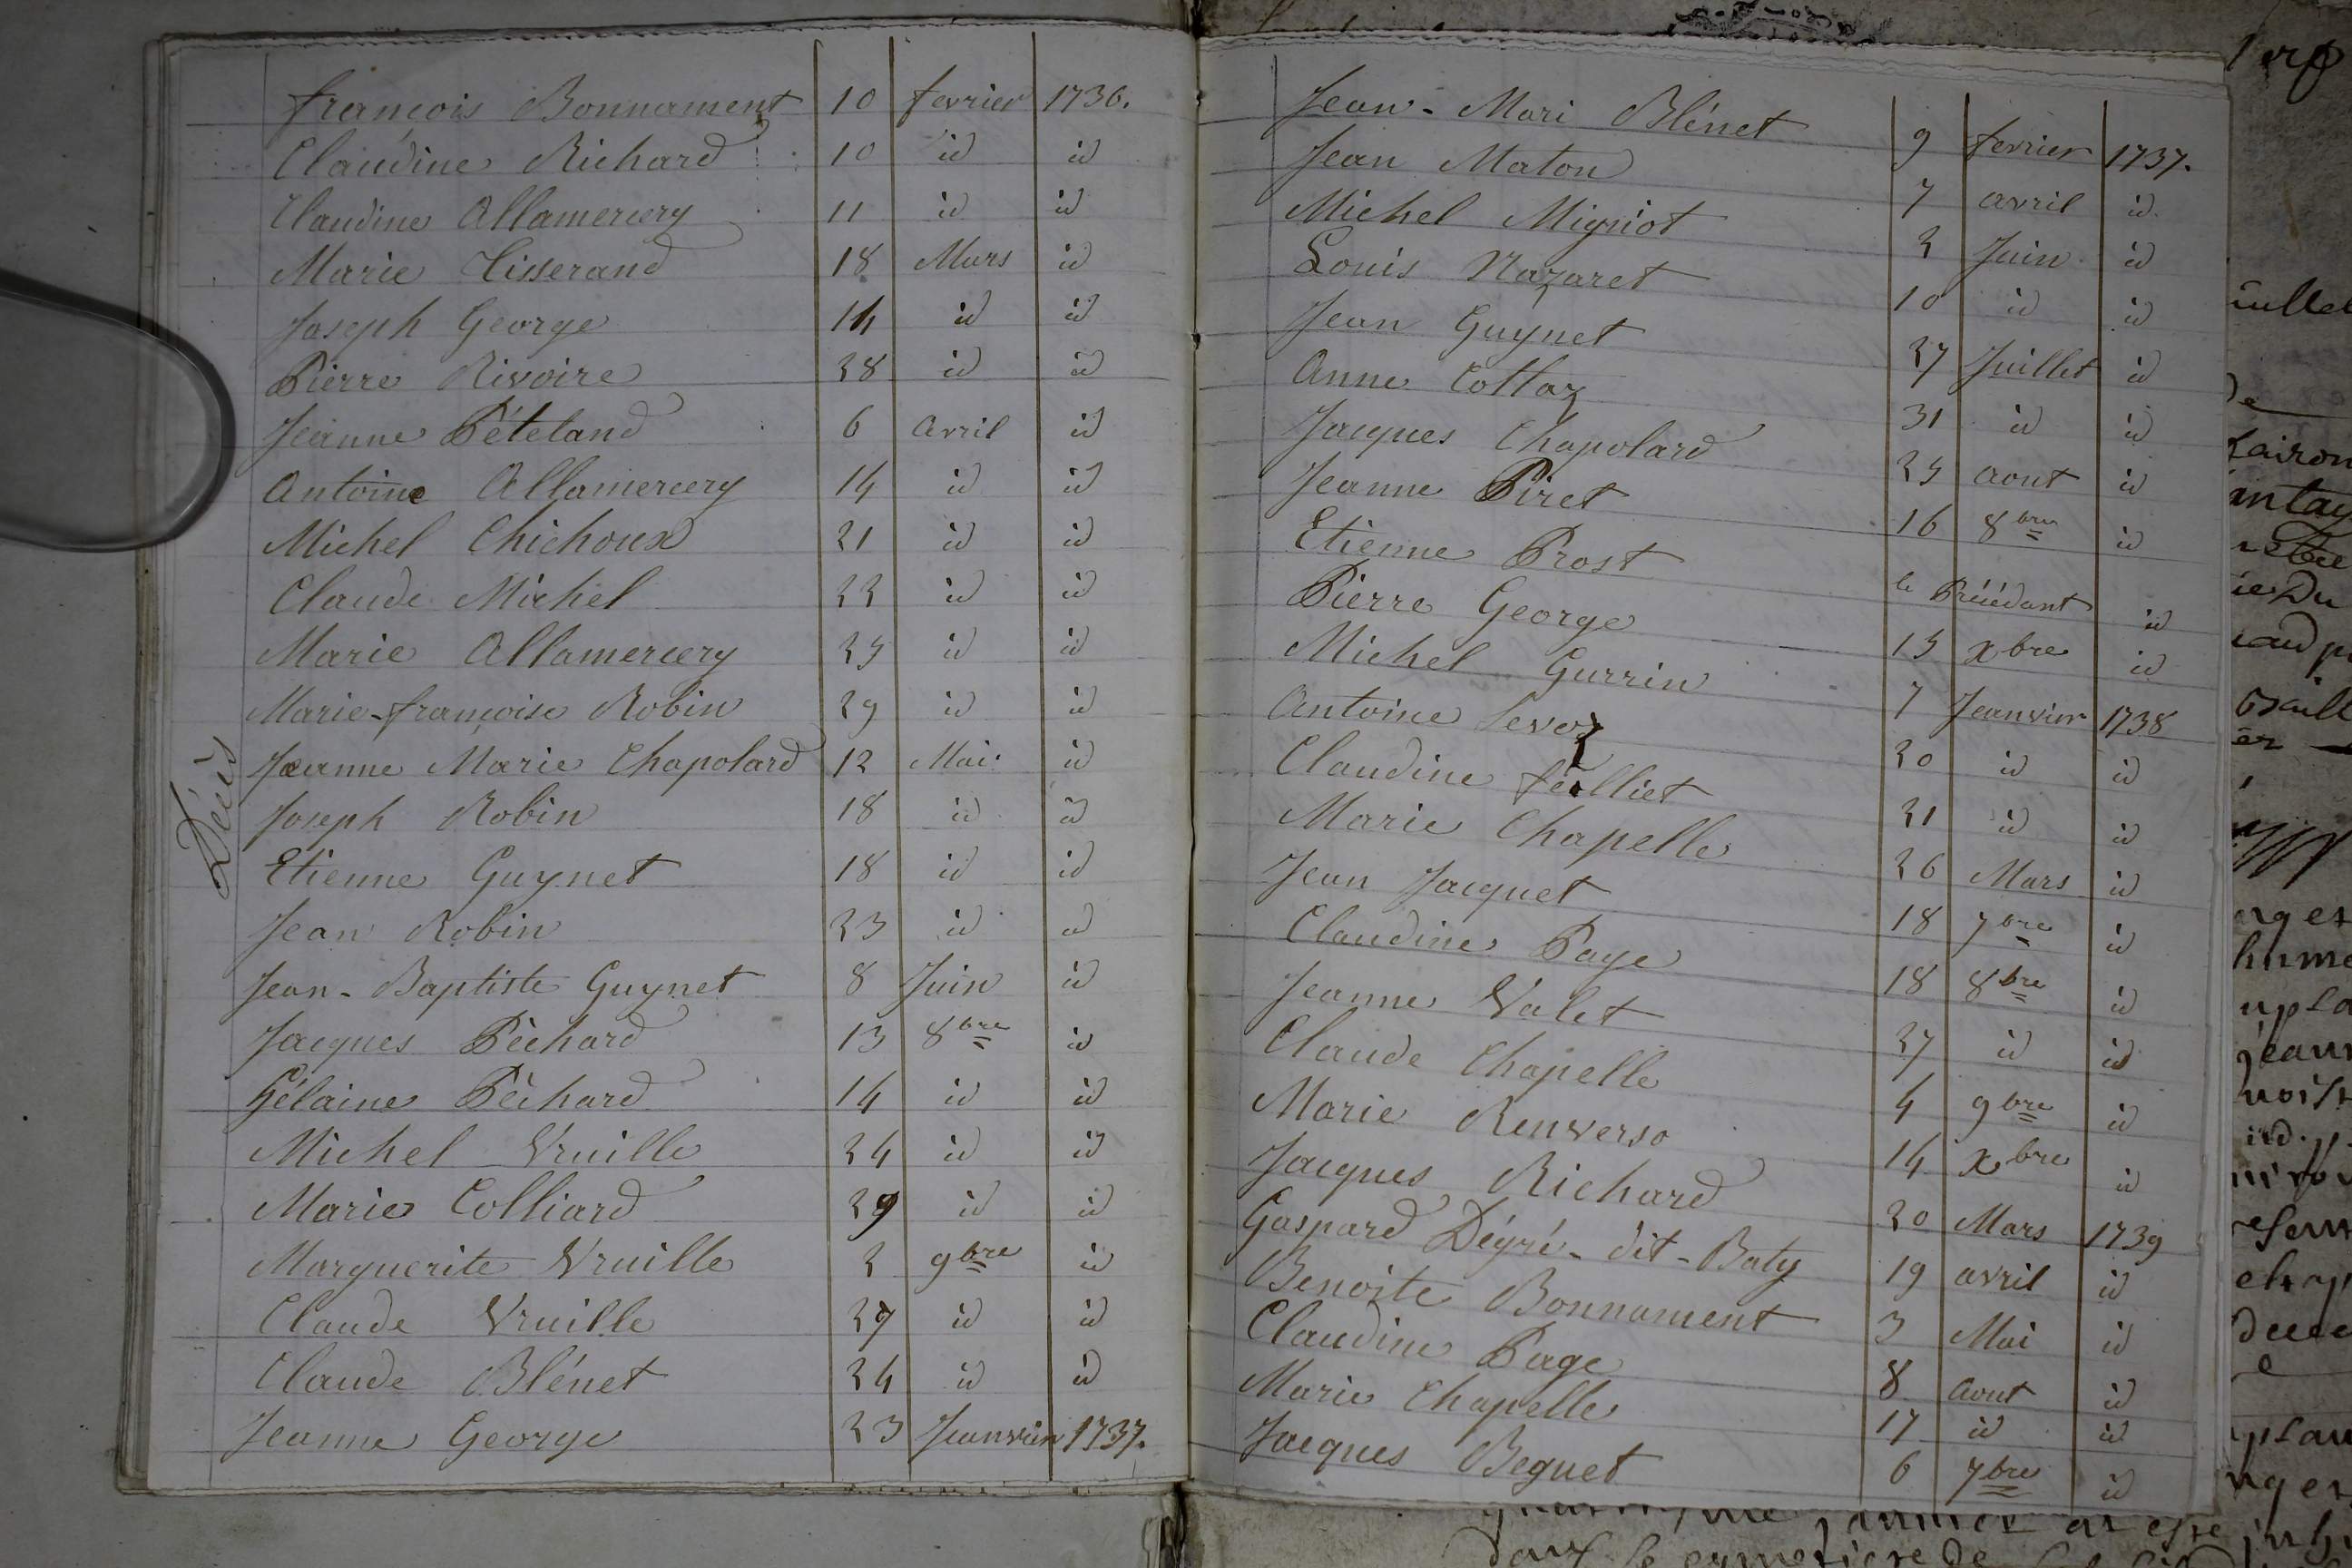 Décès
françois Bonnament 10 fevrier 1736.
Claudine Richard 10 id id
Claudine Allamercery 11 id id
Marie Tisserand 18 Mars id
Joseph George 14 id id
Pierre Rivoire 28 id id
Jeanne Pételand 6 avril id
Antoine Allamercery 14 id id
Michel Chichoux 21 id id
Claude Michel 22 id id
Marie Allamercery 25 id id
Marie-françoise Robin 29 id id
Jeanne Marie Chapolard 12 Mai id
Joseph Robin 18 id id
Etienne Guynet 18 id id
Jean Robin 23 id id
Jean-Baptiste Guynet 8 Juin id
Jacques Péchard 13 8bre id
Gélaine Péchard 14 id id
Michel Vruille 24 id id
Marie Colliard 29 id id
Marguerite Vruille 2 9bre id
Claude Vruille 27 id id
Claude Blénet 24 id id
Jeanne George 23 Jeanvier 1737.
Jean-Mari Blénet 9 fevrier 1737.
Jean Maton 7 avril id
Michel Migniot 2 Juin id
Louis Nazaret 10 id id
Jean Guynet 27 Juillet id
Anne Collaz 31 id id
Jacques Chapolard 25 aout id
Jeanne Piret 16 8bre id
Etienne Prost le Précédant id
Pierre George 15 xbre id
Michel Gurrin 7 Jeanvier 1738
Antoine Levoz 20 id id
Claudine feilliet 21 id id
Marie Chapelle 26 Mars id
Jean Jacquet 18 7bre id
Claudine Page 18 8bre id
Jeanne Valet 27 id id
Claude Chapelle 4 9bre id
Marie Renverso 14 xbre id
Jacques Richard 20 Mars 1739
Gaspard Dégré-dit-Baty 19 avril id
Benoite Bonnament 3 Mai id
Claudine Page 8 aout id
Marie Chapelle 17 id id
Jacques Beguet 6 7bre id